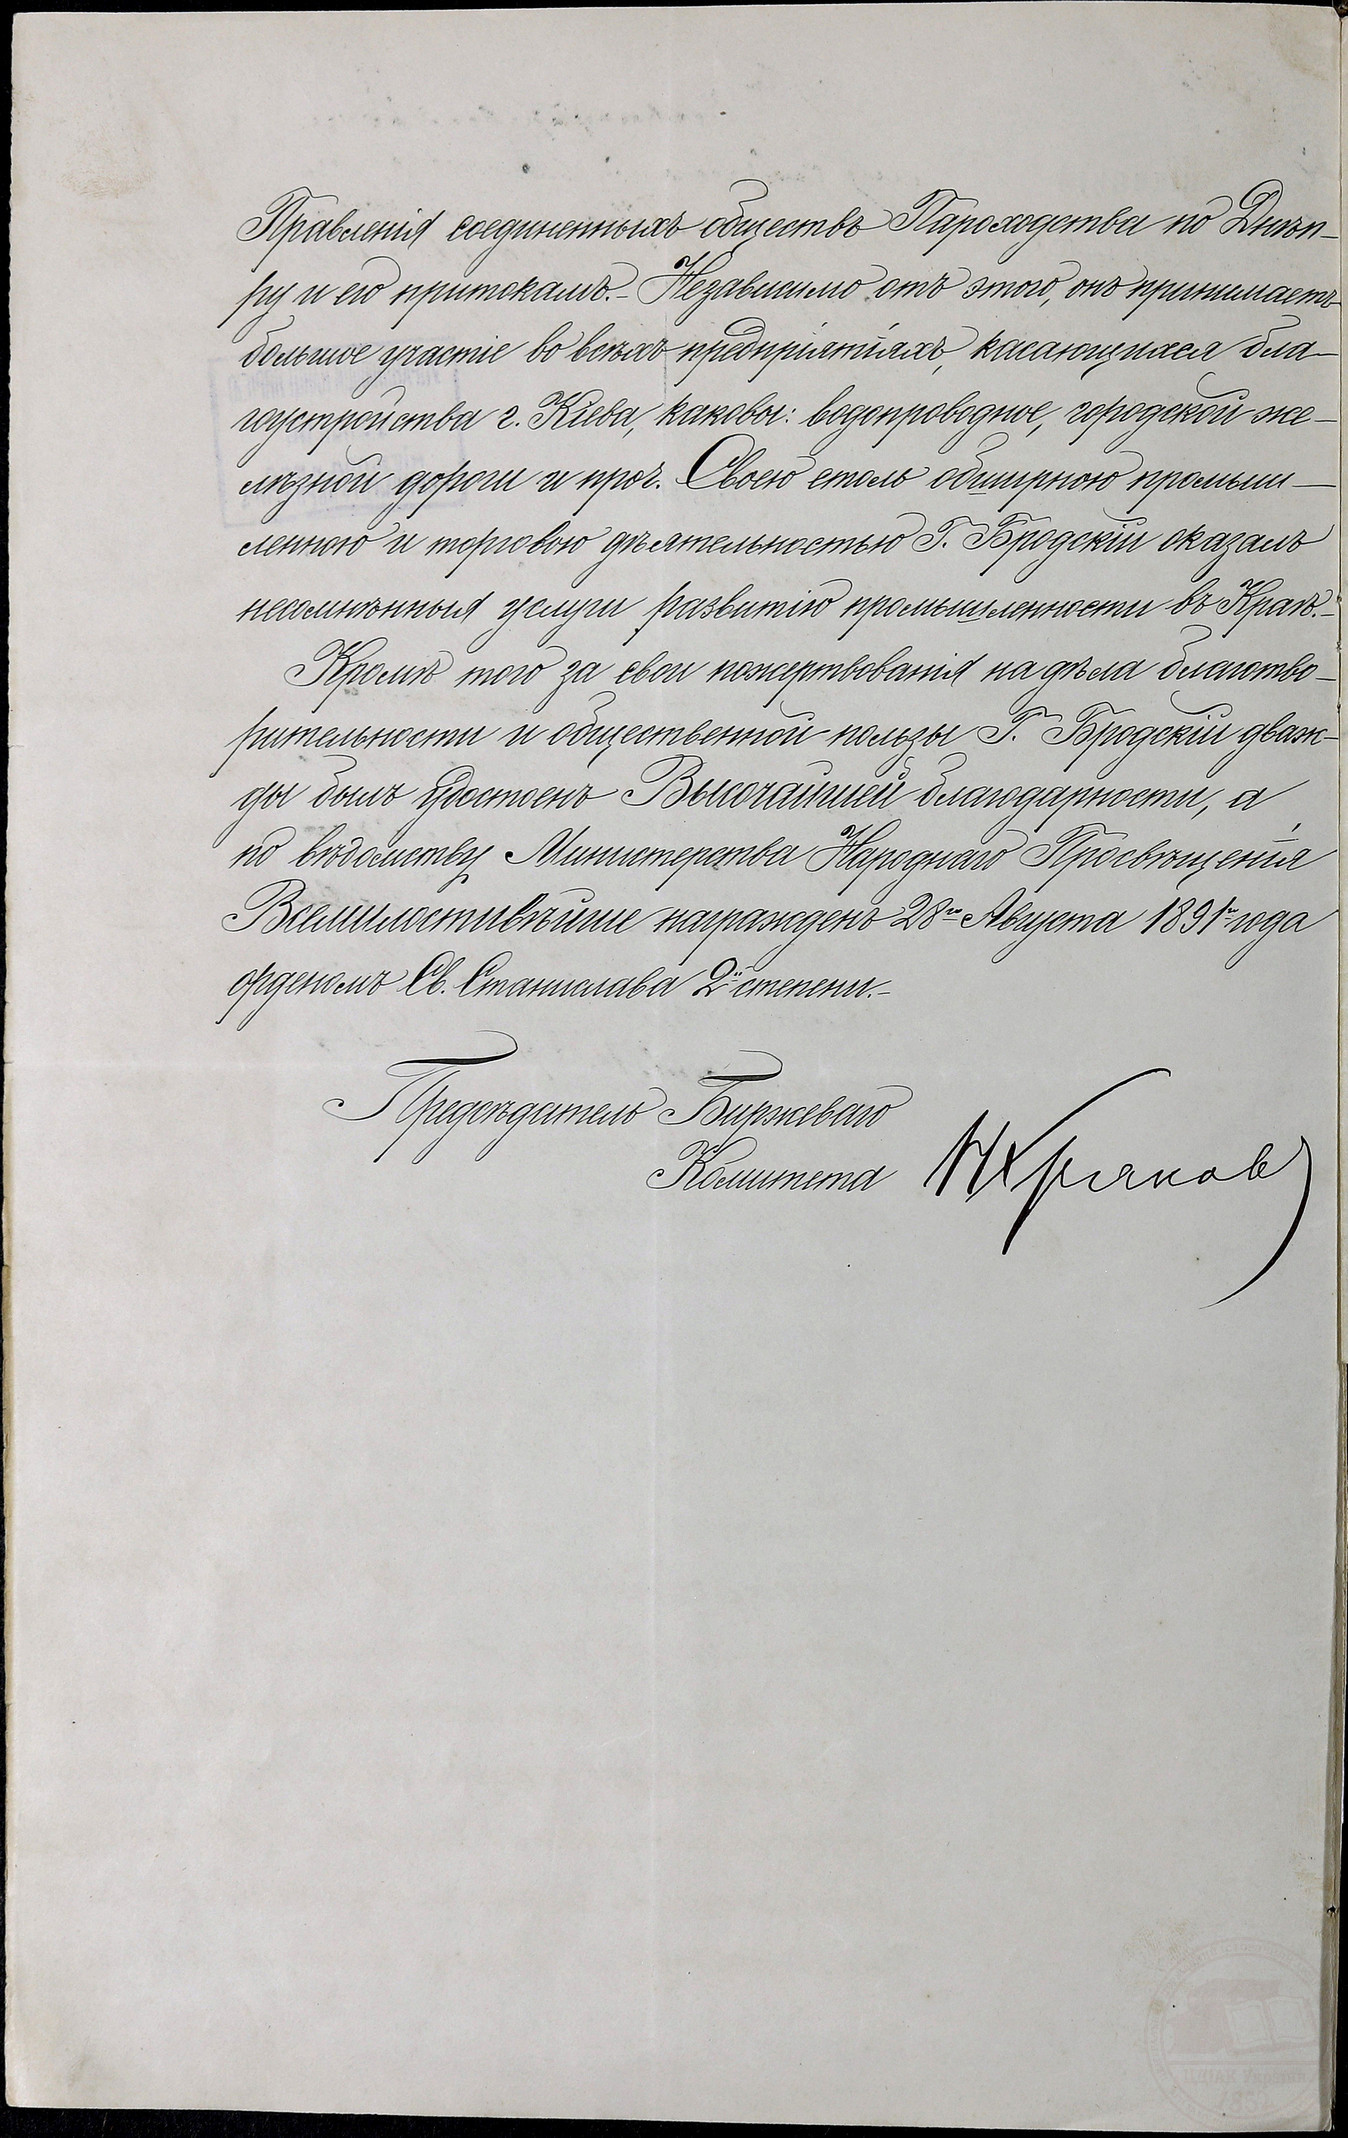 Правленія соединенныхъ обществъ Пароходства по Днѣп-
ру и его притокамъ.- Независимо отъ этого, онъ принимаетъ
большое участіе во всѣхъ предпріятіяхъ, касающихся бла-
гоустройства г. Кіева, каковы: водопроводное, городской же-
лѣзной дороги и проч. Своею столь обширною промыш-
ленною и торговою дѣятельностью Г. Бродскій оказалъ
несомнѣнныя услуги развитію промышленности въ Краѣ.-
Кромѣ того за свои пожертвованія на дѣла благотво-
рительности и общественной пользы Г. Бродскій дваж-
ды былъ удостоенъ Высочайшей благодарности, а
по вѣдомству Министерства Народнаго Просвѣщенія
Всемилостивѣйше награжденъ 28го Августа 1891го года
орденомъ Св. Станислава 2й степени.-
Предсѣдатель Биржеваго
Комитета Н Хряков
ЦДІАК України